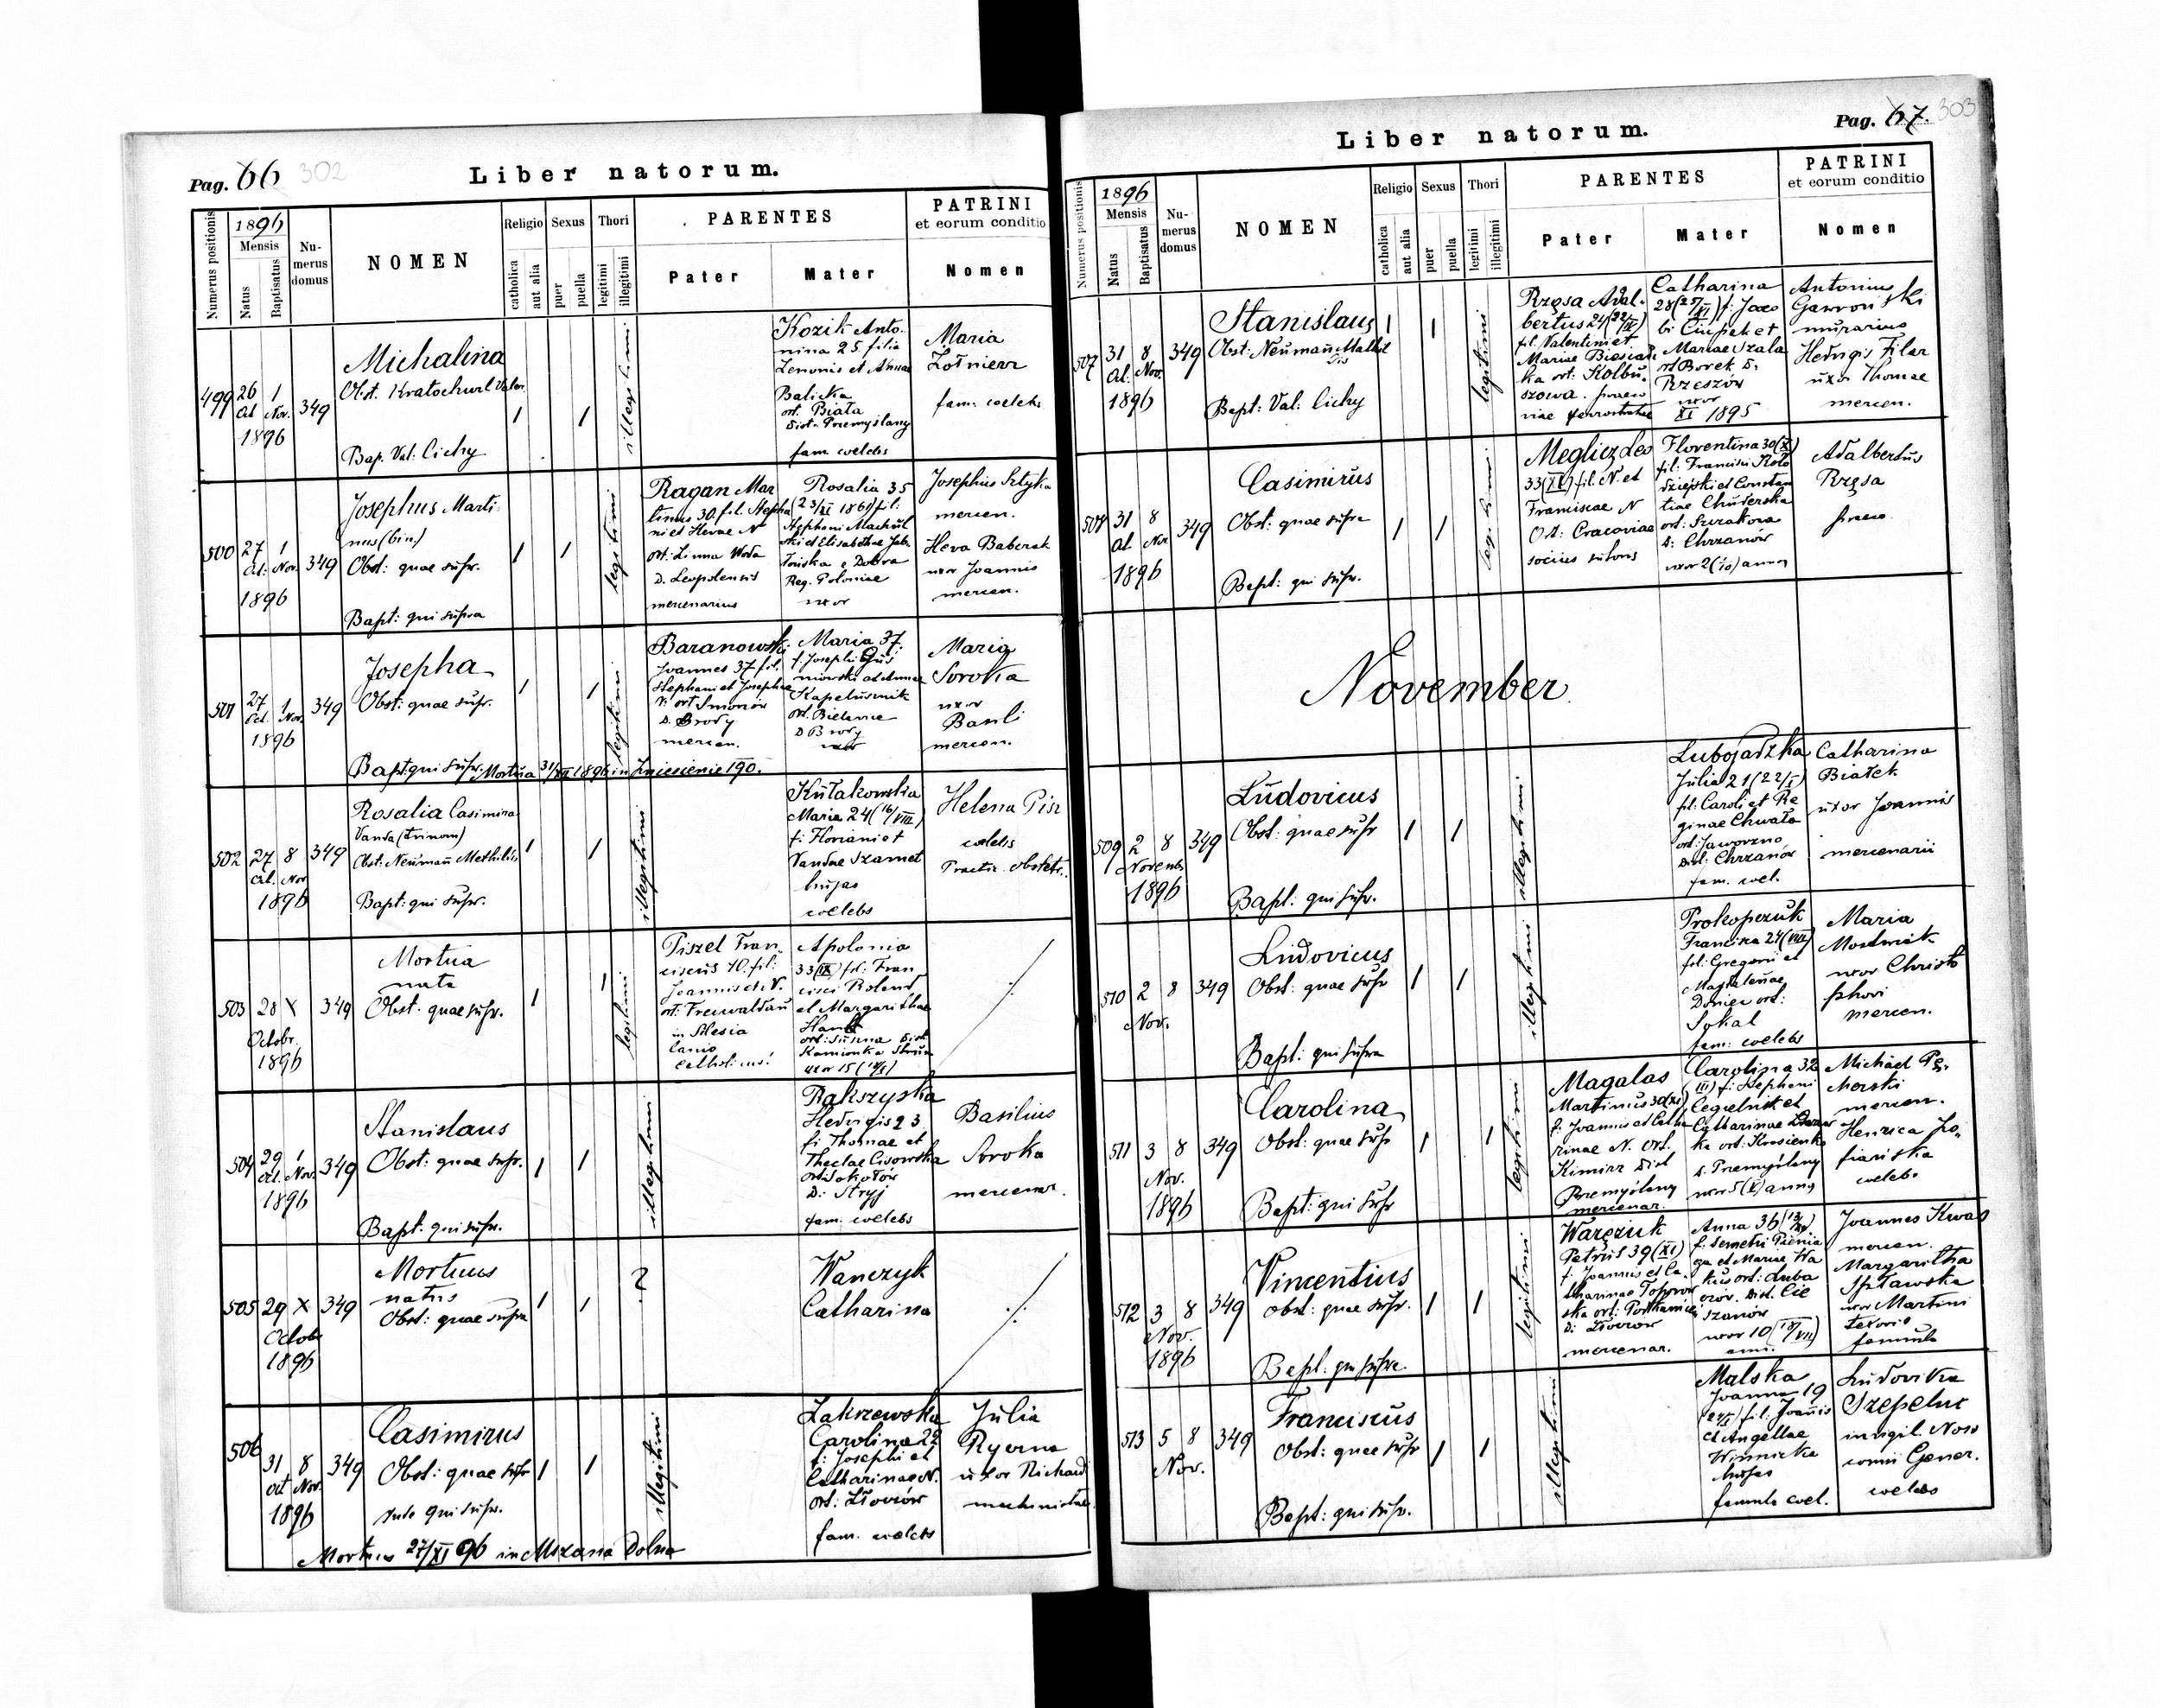 Pag. 66 302
Liber natorum.
Numerus positionis
1896
Mensis
Natus
Baptisatus
Nu-
merus
domus
NOMEN
Religio
catholica
aut alia
Sexus
puer
puella
Thori
legitimi
illegitimi
PARENTES
Pater
Mater
PATRINI
et eorum conditio
Nomen
499
26 1
Oct Nov.
1896
349
Michalina
Obst. Kratochwil Valer.
Bap. Val: Cichy
1 1
illegitimi
Kozik Anto-
nina 25 filia
Zenonis et Annae
Balicka
ort. Biała
Dist. Przemyslany
fam. coelebs
Maria
Żołnierz
fam: coelebs
500
27 1
Oct: Nov.
1896
349
Josephus Marti-
nus (bin.)
Obst: quae supr.
Bapt: qui supra
1 1
legitimi
Ragan Mar
tinus 30. fil. Stepha
ni et Hevae N
ort: Linna Woda
D. Leopolensis
mercenarius
Rosalia 35
(23/XI 1861) fil:
Stephani Machul
ski et Elisabethae
e Dobra
Reg. Poloniae
uxor
Josephus Sztyka
mercen.
Heva Baberak
uxor Joannis
mercen.
501
27 1
Oct. Nov.
1896
349
Josepha
Obst: quae supr.
Bapt: qui supr. Mortua 31/XII 1896 in Zniesienie 190.
1 1
legitimi
Baranowski
Joannes 37 fil.
Stephani et Josephae
N: ort Smorzów
D. Brody
mercen.
Maria 37
f. Josephi Gus
niowski et Annae
Kapelusznik
ort. Bielawce
D Brody
uxor
Maria
Soroka
uxor
Basili
mercen.
502
27 8
Oct. Nov
1896
349
Rosalia Casimira
Vanda (trinom)
Obst: Neumann Methildis
Bapt: qui supr.
1 1
illegitimi
Kułakowska
Maria 24 (16/VIII)
f: Floriani et
Vandae Szamet
hujas
coelebs
Helena Pisz
coelebs
Practic. obstetr.
503
28 X
Octobr.
1896
349
Mortua
nata
Obst: quae supr.
1 1
legitimi
Piszel Fran-
ciscus 40. fil:
Joannis et N.
ort: Freiwaldau
in Silesia
lanio
catholicus!
Apolonia
33 (IX) fil: Fran
cisci Roland
et Margarithae
ort: Susina Dist
Kamionka Strum
uxor 15
504
29 1
Oct. Nov.
1896
349
Stanislaus
Obst: quae supr.
Bapt: qui supr.
1 1
illegitimi
Rakszyska
Hedvigis 23
f: Thomae et
Theclae Cisowska
ort Sokołów
D: Stryj
fam. coelebs
Basilius
Soroka
mercenar.
505
29 X
Octob
1896
349
Mortuus
natus
Obst: quae supra
1 1
?
Wanczyk
Catharina
506
31 8
Oct Nov.
1896
349
Casimirus
Obst: quae supr
qui supr.
Mortuus 27/XI 96 in Mszana Dolna
1 1
illegitimi
Zakrzewska
Carolina 22
f: Josephi et
Catharinae N.
ort: Złoczów
fam. coelebs
Julia
Ryerna
uxor Richardi
machinistae
Pag. 67. 303
Liber natorum.
Numerus positionis
1896
Mensis
Natus
Baptisatus
Nu-
merus
domus
NOMEN
Religio
catholica
aut alia
Sexus
puer
puella
Thori
legitimi
illegitimi
PARENTES
Pater
Mater
PATRINI
et eorum conditio
Nomen
507
31 8
Oct. Nov.
1896
349
Stanislaus
Obst: Neumann Mathil
dis
Bapt: Val: Cichy
1 1
legitimi
Rzęsa Adal-
bertus 24 (22/IV)
fil. Valentini et
Mariae Biesiad
ka ort: Kolbu-
szowa.
Catharina
28 (25/XI) f: Jaco
bi Ciupek et
Mariae Szala
ort Borek D:
Rzeszów
uxor
XI 1895
Antonius
Gawroński
murarius
Hedvigis Filar
uxor Thomae
mercen.
508
31 8
Oct Nov
1896
349
Casimirus
Obst: quae supra
Bapt: qui supr.
1 1
legitimi
Meglicz Leo
33 (XI) fil. N. et
Franciscae N
Ort: Cracoviae
socius sutoris
Florentina 30 (X)
fil: Francisci Koło
dziejski et Constan
tiae Chuderska
ort: Szczakowa
D: Chrzanów
uxor 2 (/10) annos
Adalbertus
Rzęsa
November
509
2 8
Novembr
1896
349
Ludovicus
Obst: quae supr
Bapt: qui supr.
1 1
illegitimi
Lubojadzka
Julia 21 (22/I)
fil: Caroli et Re
ginae Chwała
ort: Jaworzno
Dist: Chrzanów
fam. coel.
Catharina
Białek
uxor Joannis
mercenarii
510
2 8
Nov.
349
Ludovicus
Obst: quae supr
Bapt: qui supra
1 1
illegitimi
Prokopczuk
Francisca 24 (VIII)
fil: Gregorii et
Magdalenae
Doniec ort:
Sokal
fam: coelebs
Maria
uxor Christo
phori
mercen.
511
3 8
Nov.
1896
349
Carolina
Obst: quae supr
Bapt: qui supr
1 1
legitimi
Magalas
Martinus 30 (XI)
f: Joannis et Catha
rinae N. Ort.
Kimirz Dist
Przemyślany
mercenar.
Carolina 32
(III) f: Stephani
Cegielnik et
Catharinae
ka ort: Krosienko
D. Przemyślany
uxor 5 (X) annos
Michael Pe-
merski
mercen.
Henrica Zo-
fiańska
coelebs
512
3 8
Nov.
1896
349
Vincentius
Obst: quae supr.
Bapt: qui supra.
1 1
legitimi
Warczuk
Petrus 39 (XI)
f: Joannis et Ca-
tharinae Toporow
ska ort: Podkamień
D: Złoczów
mercenar.
Anna 36
f: Semetri Pienia
ga et Mariae Wa
kus ort: Luba
czów. Dist. Cie
szanów
uxor 10 (18/VII)
anni.
Joannes Kwas
mercen.
Margaritha
Spławska
uxor Martini
textoris
famula
513
5 8
Nov.
349
Franciscus
Obst: quae supr
Bapt: qui supr.
1 1
illegitimi
Malska
Joanna 19
fil: Joannis
et Angellae
Winnicka
hujas
famula coel.
Ludovika
Szepeluk
invigil. Noso
comii Gener.
coelebs